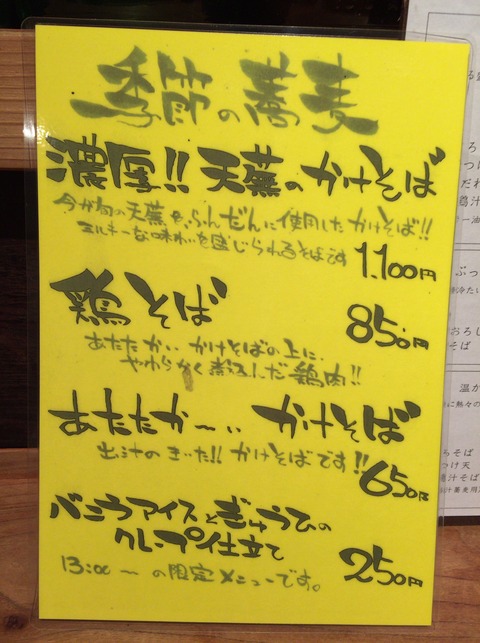 季節の蕎麦
濃厚!!天蕪のかけそば
今が旬の天蕪をふんだんに使用したかけそば!!
ミルキーな味わいを感じられるそばです
1.100円
鶏そば
850円
あたたかい かけそばの上に、
やわらかく煮込んだ鶏肉!!
あたたか〜い かけそば
出汁のきいた!! かけそばです!!
650円
バニラアイスとぎゅうひの
クレープ仕立て
250円
13:00〜の限定メニューです。